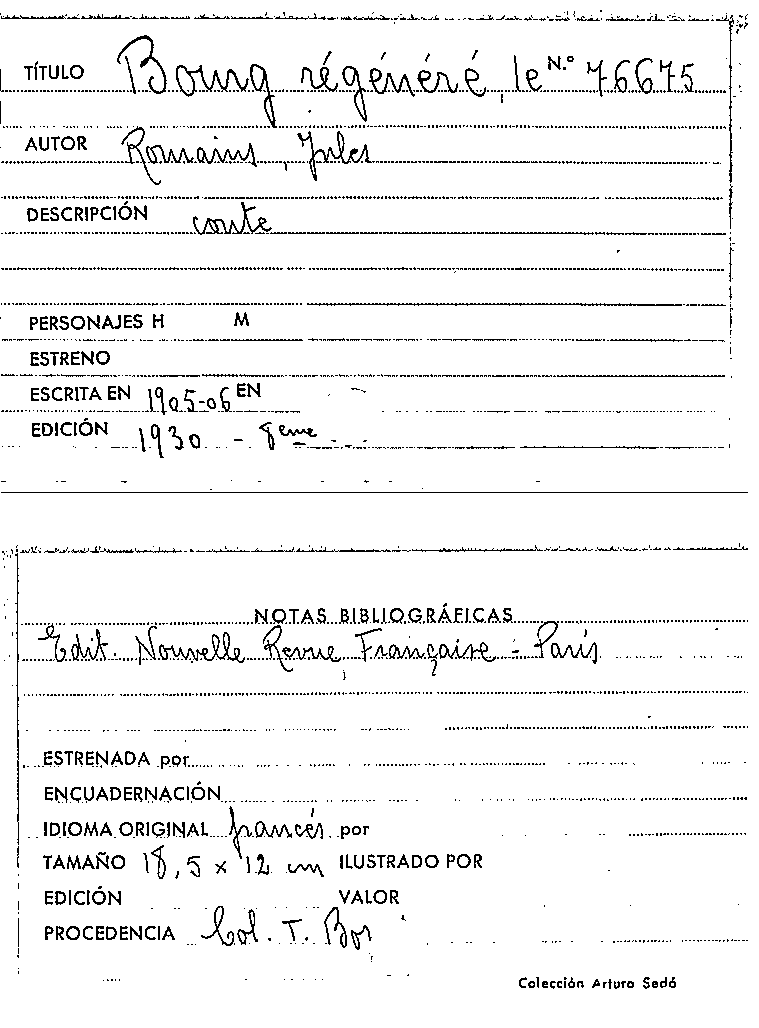 TÍTULO Bourg régénéré, le N.º 76675
AUTOR Romains, Jules
DESCRIPCIÓN conte
PERSONAJES H M
ESTRENO
ESCRITA EN 1905-06 EN
EDICIÓN 1930 - 8eme
NOTAS BIBLIOGRÁFICAS
Edit. Nouvelle Revue Française - París
ESTRENADA por
ENCUADERNACIÓN
IDIOMA ORIGINAL francés por
TAMAÑO 18,5 x 12 cm ILUSTRADO POR
EDICIÓN VALOR
PROCEDENCIA Col. T. Bor
Colección Arturo Sedó